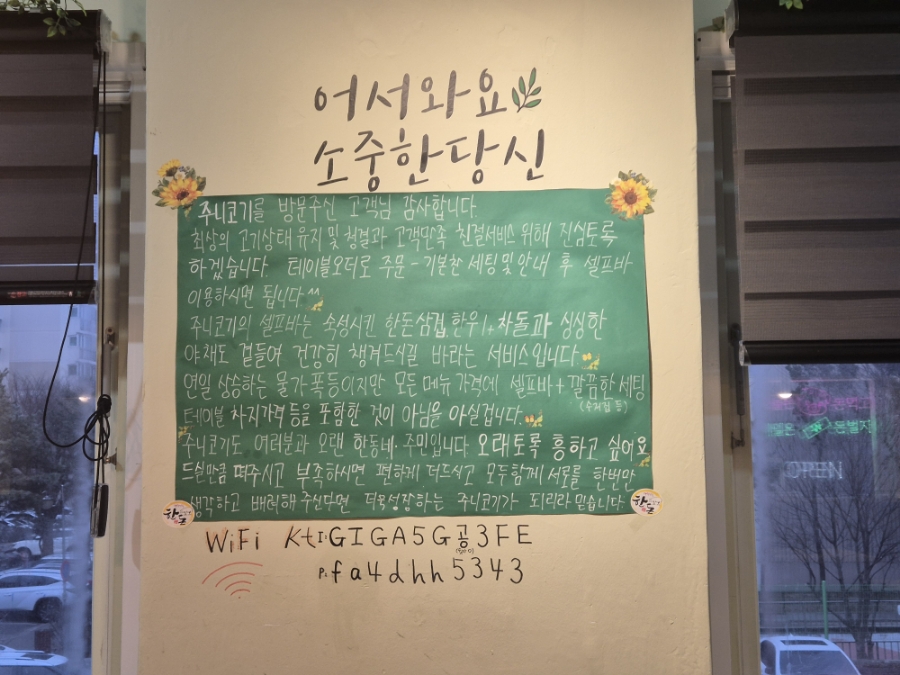 어서와요
소중한당신
주니코기를 방문주신 고객님 감사합니다.
최상의 고기상태 유지 및 청결과 고객만족 친절서비스 위해 진심토록
하겠습니다 테이블오더로 주문 - 기본찬 세팅및안내 후 셀프바
이용하시면 됩니다^^
주니코기의 셀프바는 숙성시킨 한돈삼겹, 한우1+차돌과 싱싱한
야채도 곁들여 건강히 챙겨드시길 바라는 서비스입니다
연일 상승하는 물가 폭등이지만 모든메뉴가격에 셀프바+깔끔한세팅
(수저집 등)
테이블 차지가격등을 포함한 것이 아님을 아실겁니다.
주니코기도 여러분과 오랜 한동네 주민입니다 오래토록 흥하고 싶어요
드실만큼 떠주시고 부족하시면 편하게 더드시고 모두함께 서로를 한번만
생각하고 배려해 주신다면 더욱성장하는 주니코기가 되리라 믿습니다.
차돌 차돌
WiFi Kt기GIGA5G공3FE
P.fa4dhh5343
OPEN